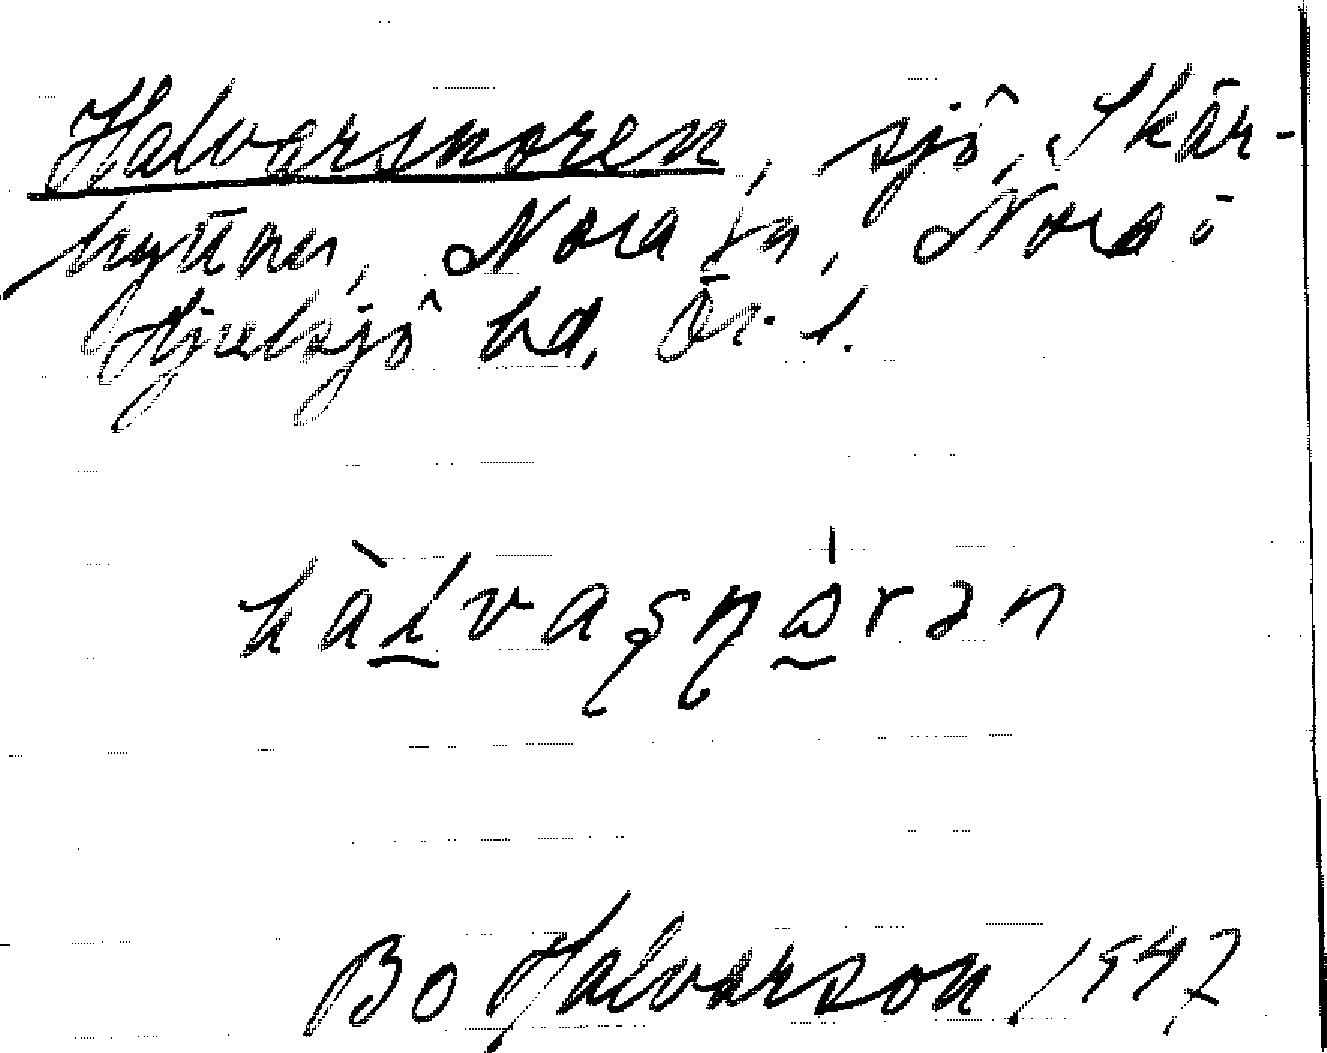 Halvarsnoren, sjö, Skär-
hyttan, Nora sn, Nora o
Hjulsjö hd, Ör. l.
hàlvaʂɳώrən
Bo Halvarson 1947